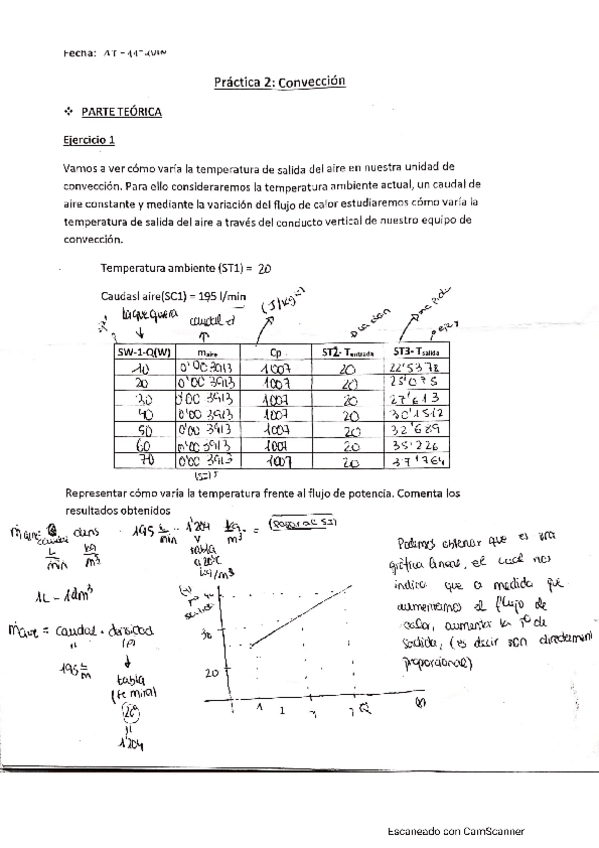 Fecha:
Práctica 2: Convección
❖ PARTE TEÓRICA
Ejercicio 1
Vamos a ver cómo varía la temperatura de salida del aire en nuestra unidad de
convección. Para ello consideraremos la temperatura ambiente actual, un caudal de
aire constante y mediante la variación del flujo de calor estudiaremos cómo varía la
temperatura de salida del aire a través del conducto vertical de nuestro equipo de
convección.
Temperatura ambiente (ST1) = 20
Caudasl aire(SC1) = 195 l/min
(J/kg·K)
SW-1-Q(W) m aire Cp ST2- Tentrada ST3- Tsalida
10 0'003913 1007 20 22'5378
20 0'003913 1007 20 25'075
30 0'003913 1007 20 27'613
40 0'003913 1007 20 30'1512
50 0'003913 1007 20 32'689
60 0'003913 1007 20 35'226
70 0'003913 1007 20 37'764
Representar cómo varía la temperatura frente al flujo de potencia. Comenta los
resultados obtenidos
maire = caudal · dens 195 L/min · 1'204 kg/m³ = (pasar al SI)
tabla
a 20ºC
kg/m³
L/min kg/m³
1L - 1dm³
maire = caudal · densidad
195 L/m
tabla
(te mira)
20º
1'204
30
20
1 2 3 Q
Podemos observar que es una
gráfica lineal, el cual nos
indica que a medida que
aumentamos el flujo de
calor, aumenta la Tº de
salida, (es decir son directament
proporcional)
Escaneado con CamScanner